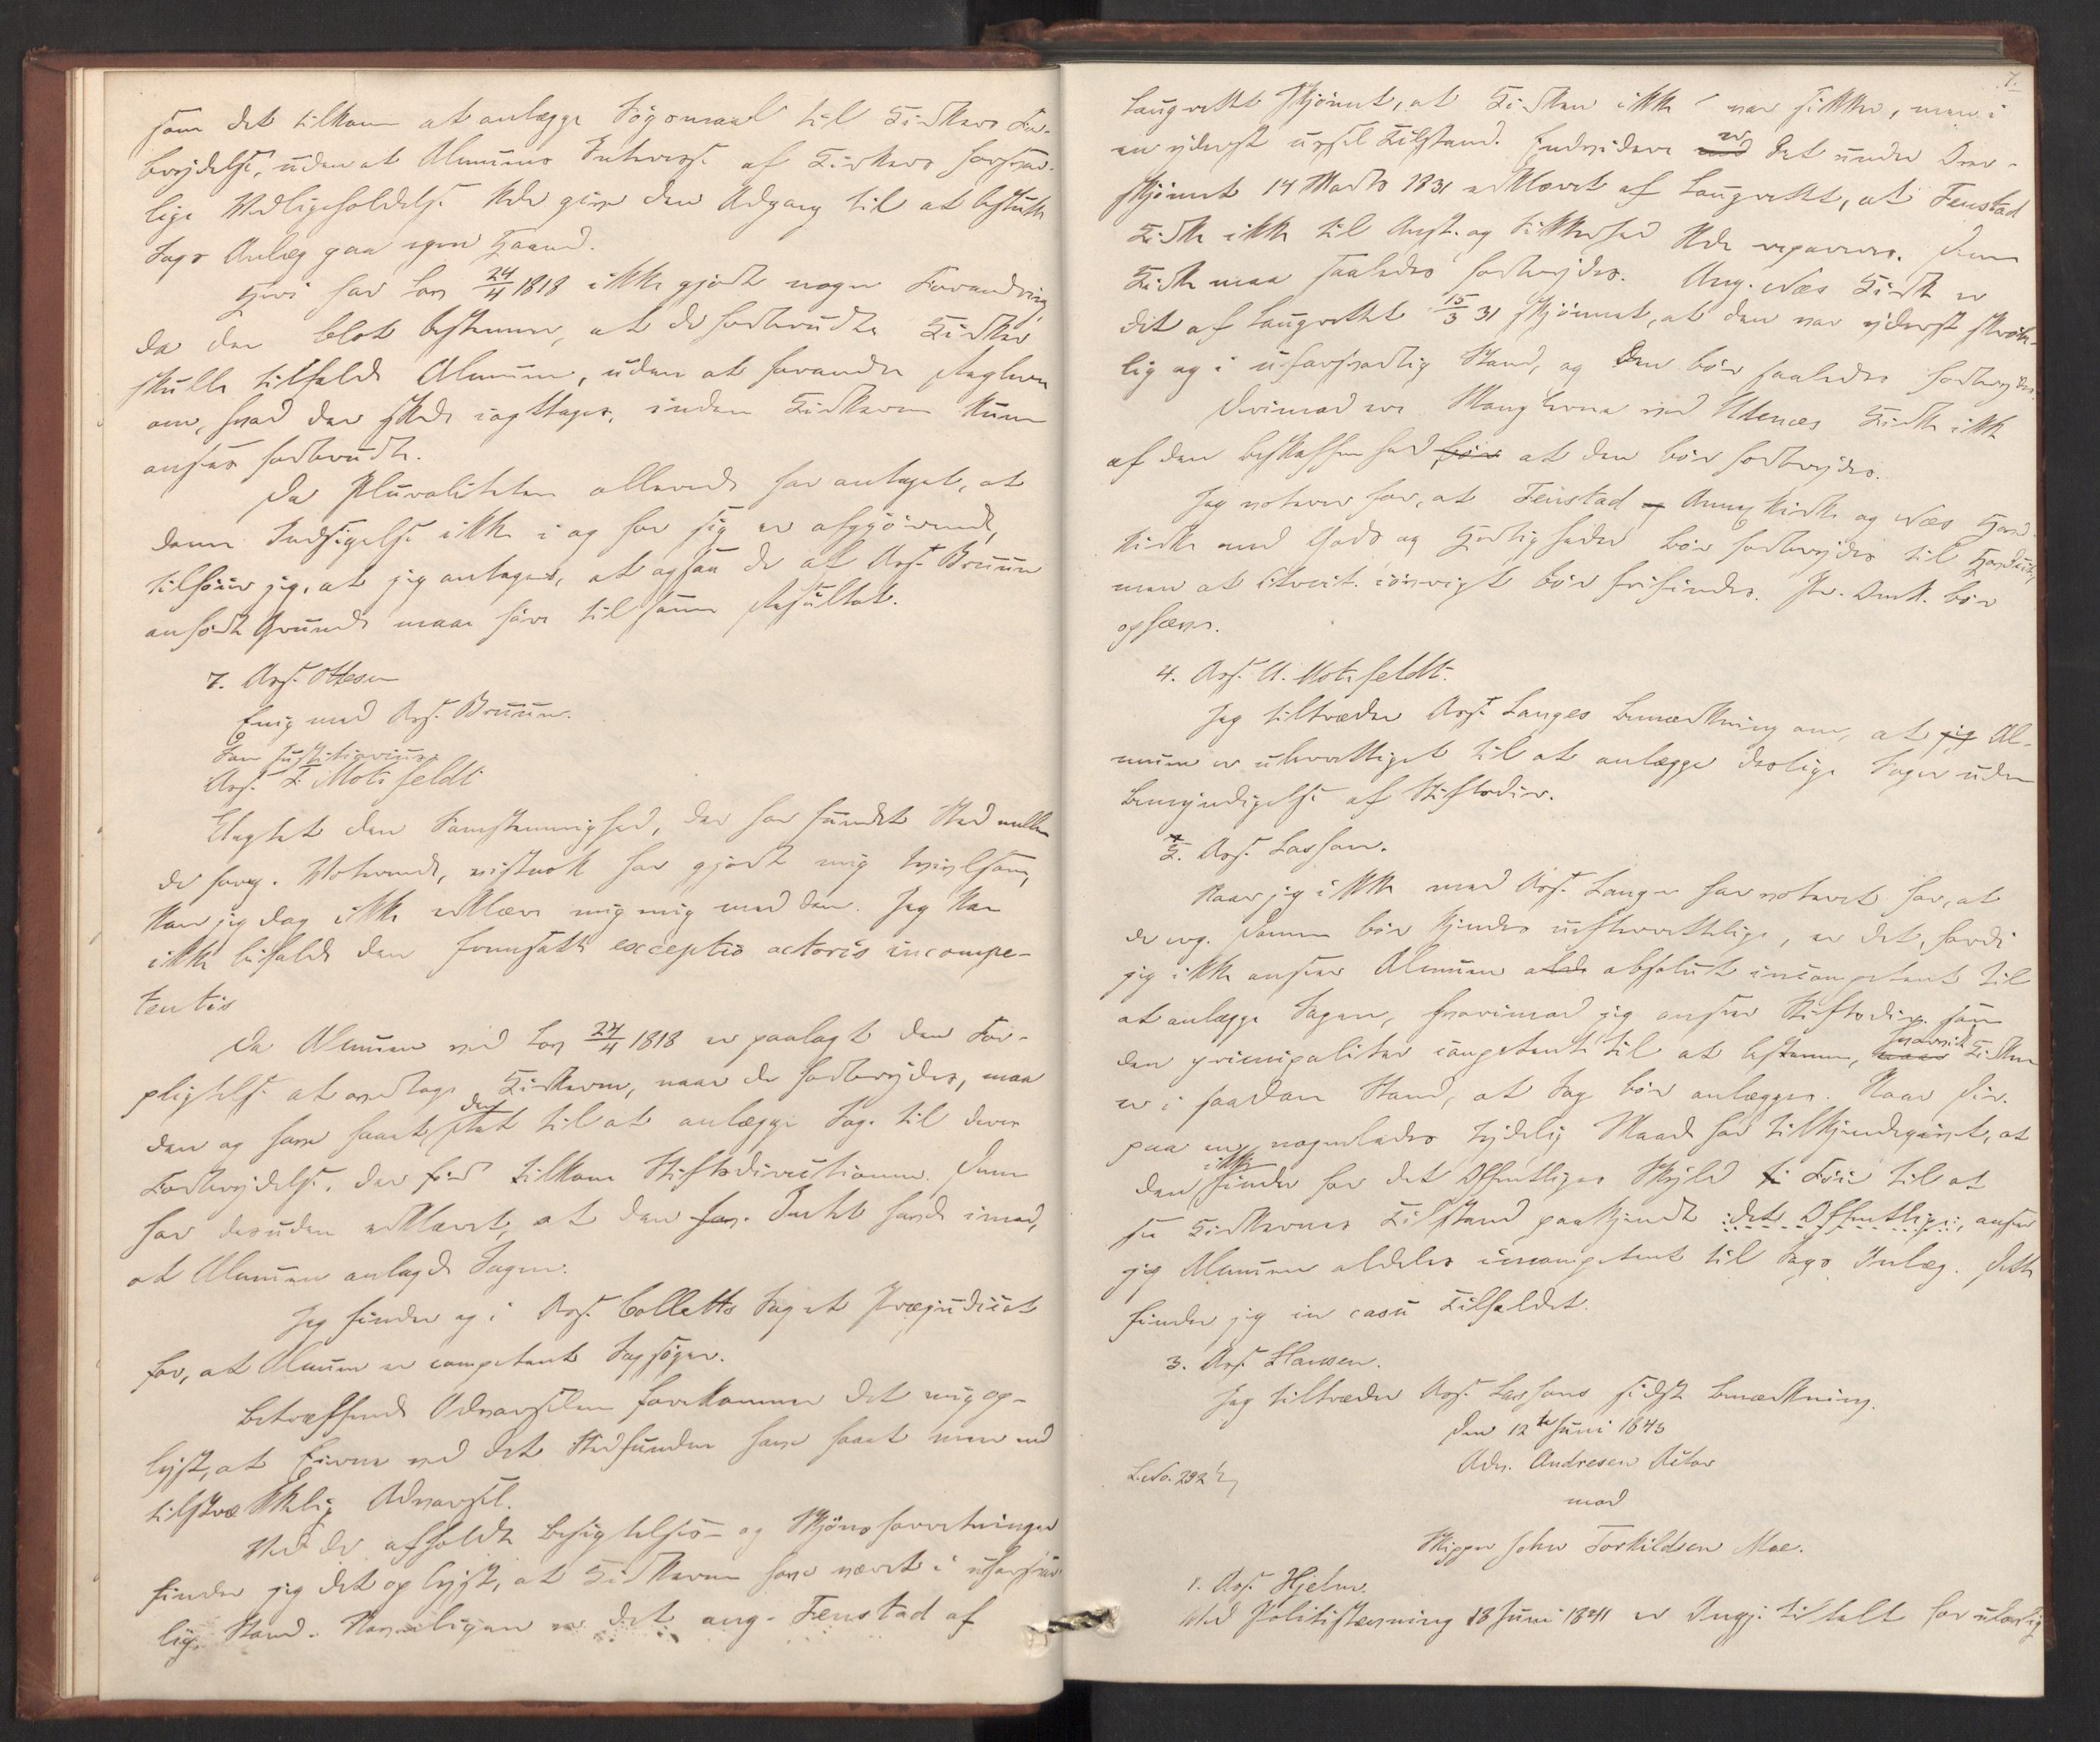 som det tilkom at anlægge Søgsmaal til Kirkers For-
brydelse, uden at Almuens Interesse af Kirkers forsvar-
lige Vedligeholdelse kde give den Adgang til at beslutte
Sags Anlæg paa egen Haand.
Heri har Lov 24/4 1818 ikke gjort nogen Forandring,
da den blot bestemmer, at de forbrudte Kirker
skulle tilfalde Almuen, uden at forandre Reglerne
om, hvad der skde iagttages, inden Kirkerne kunne
ansees forbrudte.
Da Pluraliteten allerede har antaget, at
denne Indsigelse ikke i og for sig er afgjørende,
tilføier jeg, at jeg antager, at ogsaa de af Ass. Bruun
anførte Grunde maa føre til samme Resultat.
7. Ass. Ottesen
Enig med Ass. Bruun.
Som Justitiarius
Ass. K Motzfeldt
Uagtet den Samstemmighed, der har fundet Sted mellem
de foreg. Voterende, vistnok har gjort mig tvivlsom,
kan jeg dog ikke erklære mig enig med dem. Jeg kan
ikke bifalde den fremsatte exceptio actoris incompe-
tentis
Da Almuen ved Lov 24/4 1818 er paalagt den For-
pligtelse at modtage Kirkerne, naar de forbrydes, maa
den og have faaet den Ret til at anlægge Sag til deres
Forbrydelse, der før tilkom Stiftsdirectionen. Denne
har desuden erklæret, at den har Intet havde imod,
at Almuen anlagde Sagen.
Jeg finder og i Ass. Colletts Sag et Præjudicat
for, at Almuen er competent Sagsøger.
Betræffende Advarselen forekommer det mig op-
lyst, at Eierne ved det Stedfundne have faaet mere end
tilstrækkelig Advarsel.
Ved de afholdte Besigtelses- og Skjønsforretninger
finder jeg det oplyst, at Kirkerne have været i uforsvar-
lig Stand. Navnligen er det ang. Fenstad af
7.
Laugrettet skjønnet, at Kirken ikke var sikker, men i
en yderst ussel Tilstand. Endvidere er det under Over-
skjønnet 14 Marts 1831 erklæret af Laugrettet, at Fenstad
Kirke ikke til Nytte og Sikkerhed kde repareres. Denne
Kirke maa saaledes forbrydes. Ang. Næs Kirke er
det af Laugrettet 15/3 31 skjønnet, at den var yderst skrøbe-
lig og i uforsvarlig Stand, og den bør saaledes forbrydes.
Derimod ere Manglerne ved Udenes Kirke ikke
af den Beskaffenhed før at den bør forbrydes.
Jeg voterer for, at Fenstad og Annex Kirke og Næs Hoved-
kirke med Gods og Herligheder bør forbrydes til Hovedcit.,
men at Citereit. iøvrigt bør frifindes. Pr. Omk. bør
ophæves.
4. Ass. U. Motzfeldt.
Jeg tiltræder Ass. Langes Bemærkning om, at jeg Al-
muen er uberettiget til at anlægge deslige Sager uden
Bemyndigelse af Stiftsdir.
2. Ass. Lasson.
Naar jeg ikke med Ass. Lange har voteret for, at
de ovg. Domme bør kjendes uefterrettelige, er det, fordi
jeg ikke ansees Almuen absolut incompetent til
at anlægge Sagen, hvorimod jeg anseer Stiftsdir. som
den principaliter competente til at bestemme, hvorvidt Kirken
er i saadan Stand, at Sag bør anlægges. Naar Dir.
paa en nogenledes tydelig Maade har tilkjendegivet, at
den ikke finder for det Offentliges Skyld Føie til at
faa Kirkernes Tilstand paakjendt :det Offentlige:, anseer
jeg Almuen aldeles incompetent til Sags Anlæg. Dette
finder jeg in casu Tilfældet.
3. Ass. Hansen.
Jeg tiltræder Ass. Lassons sidste Bemærkning.
Den 12te Juni 1843
Adv. Andresen Actor
mod
Skipper John Torkildsen Moe.
L. No. 292 1/2
1. Ass. Hjelm.
Ved Politistævning 13 Juni 1841 er Angj. tiltalt for ulovlig